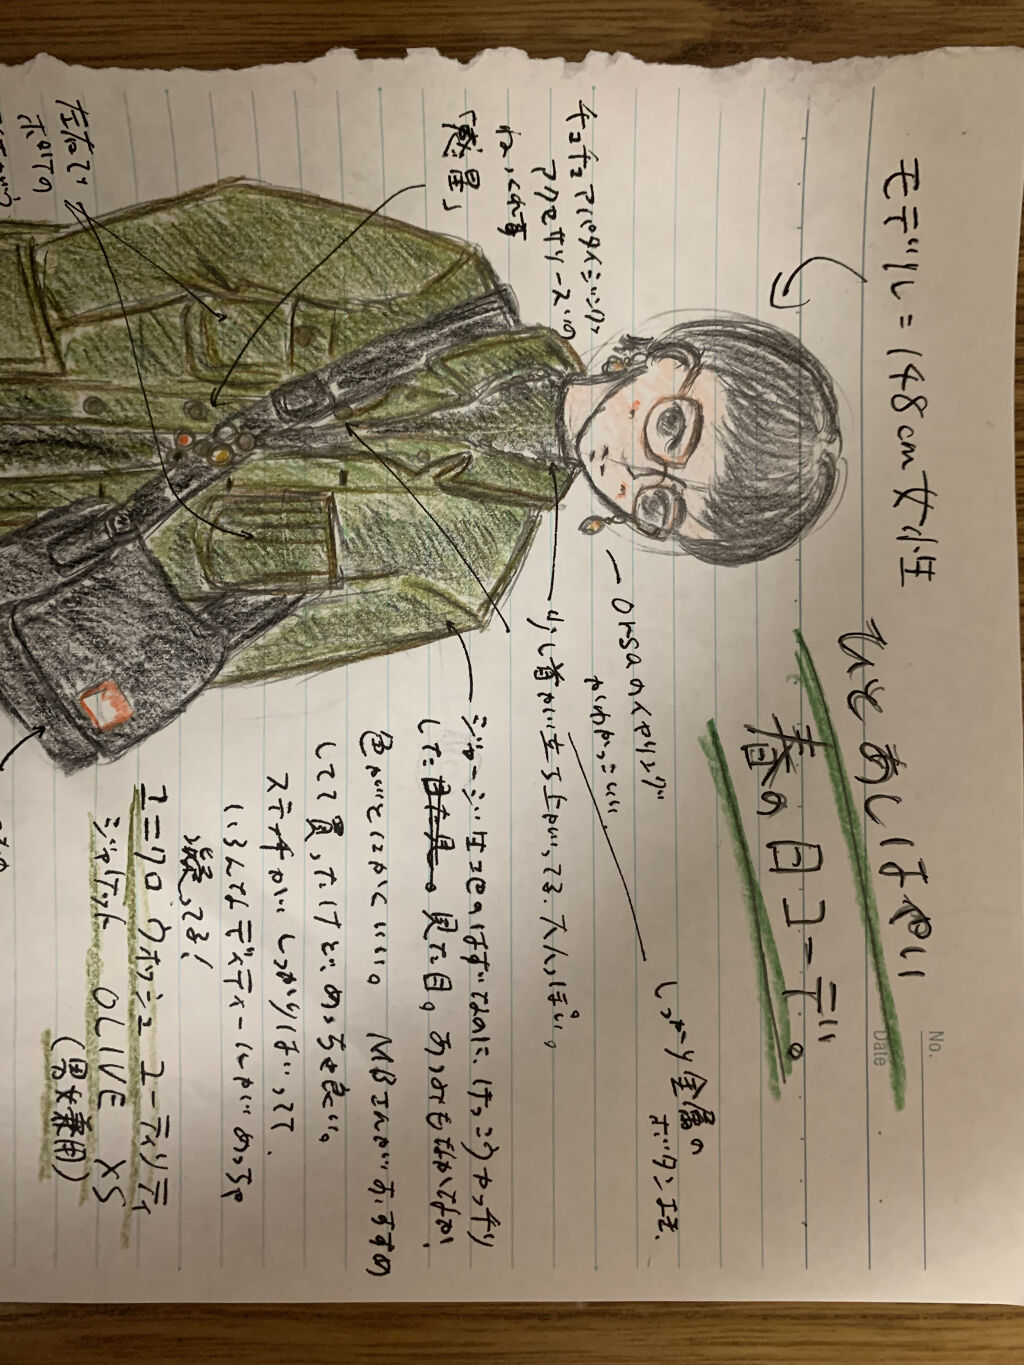 No.
Date
ひとあしはやい
春の日コーデ。
モデル=148cm女性
チュチュアパタイジング
アクセサリーズの
ねっくれす
「惑星」
左右で
ポケットの
Orsaのイヤリング
かわかっこいい
少し首がい立ち上がってる。大人っぽい。
しっかり金属の
ボタンエモ
ジャージ生地のはずなのに、けっこうカッチリ
した 見た目。あつみもなかなか。
色がとにかくいい。MBさんがおすすめ
してて買ったけど、めっちゃ良い。
ステッチがしっかりはいってて
いろんなディティールがめっちゃ
凝ってる!
ユニクロ ウォッシュ ユーティリティ
ジャケット OLIVE XS
(男女兼用)